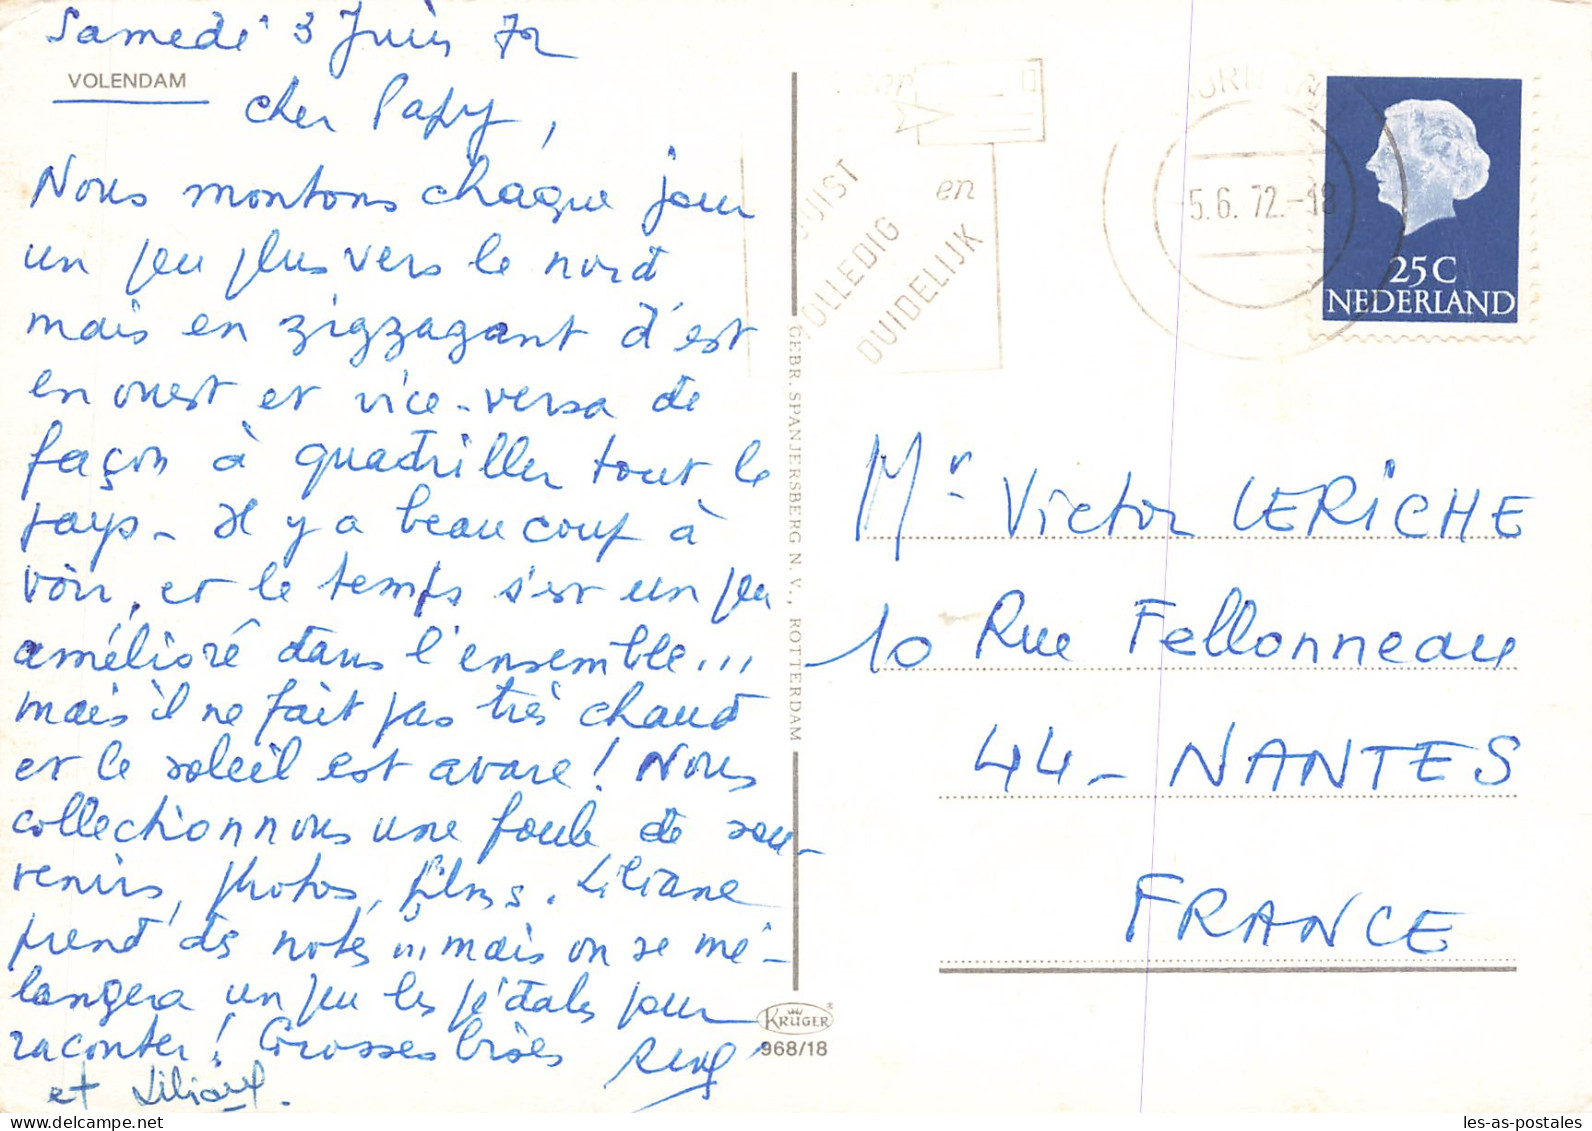 Samedi 3 Juin 72
VOLENDAM
cher Papy,
Nous montons chaque jour
un peu plus vers le nord
mais en zigzagant d'est
en ouest et vice-versa de
façon à quadriller tout le
pays - Il y a beaucoup à
voir, et le temps s'est un peu
amélioré dans l'ensemble...
mais il ne fait pas très chaud
et le soleil est avare! Nous
collectionnons une foule de sou-
venirs, photos, films. Liliane
prend des notes ... mais on se mé-
langera un peu les pédales pour
raconter! Grosses bises
et Liliane.
GEBR. SPANJERSBERG N.V., ROTTERDAM
KRÜGER®
968/18
JUIST
OLLEDIG
en
DUIDELIJK
5.6.72.-18
25C
NEDERLAND
Mr Victor LERICHE
10 Rue Fellonneau
44 - NANTES
FRANCE
les-as-postales